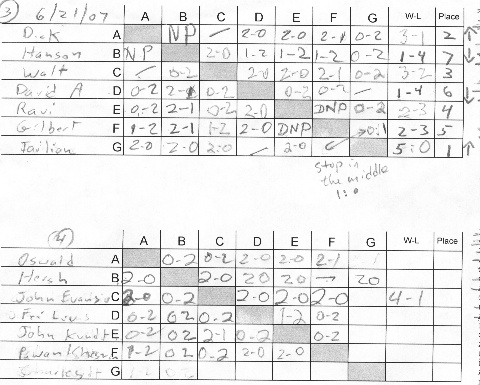 3 6/21/07 A B C D E F G W-L Place
Dick A NP / 2-0 2-0 2-1 0-2 3-1 2 ↑
Hanson B NP 2-0 1-2 1-2 1-2 0-2 1-4 7 ↓
Walt C / 0-2 2-0 2-0 2-1 0-2 3-2 3
David A D 0-2 2-1 0-2 0-2 0-2 / 1-4 6 ↓
Ravi E 0-2 2-1 0-2 2-0 DNP 0-2 2-3 4
Gilbert F 1-2 2-1 1-2 2-0 DNP 0:1 2-3 5
G 2-0 2-0 2:0 / 2-0 5:0 1 ↑
stop in
the middle
1:0
4 A B C D E F G W-L Place
Oswald A 0-2 0-2 2-0 2-0 2-1
Hersh B 2-0 2-0 20 20 → 20
John C 2-0 0-2 2-0 2-0 2-0 4-1
D 0-2 02 0-2 1-2 0-2
John E 0-2 02 2-1 0-2 0-2
Pawan F 1-2 02 0-2 2-0 2-0
G